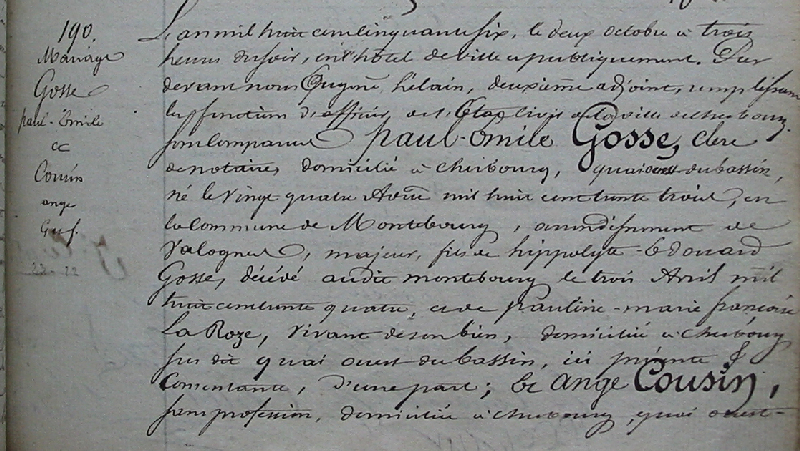 190.
Mariage
Gosse
paul-Emile
et
Cousin
ange
L'an mil huit cent cinquante six, le deux octobre à trois
heures du soir, en l'hôtel de ville et publiquement. Par
devant nous Eugène hélain, deuxième adjoint, remplissant
les fonctions d'officier de l'Etat civil de la ville de cherbourg,
sont comparus paul-Emile Gosse, clerc
de notaire, domicilié à cherbourg, quai ouest du bassin,
né le vingt quatre Avril mil huit cent trente trois, en
la commune de Montebourg, arrondissement de
Valognes, majeur, fils de hippolyte-Edouard
Gosse, décédé audit montebourg le trois Avril mil
huit cent trente quatre, et de pauline-marie françoise
La Roze, vivant de son bien, domiciliée à cherbourg
sus dit quai ouest du bassin, ici présente &
Consentante, d'une part; Et ange Cousin,
sans profession, domiciliée à cherbourg, quai ouest